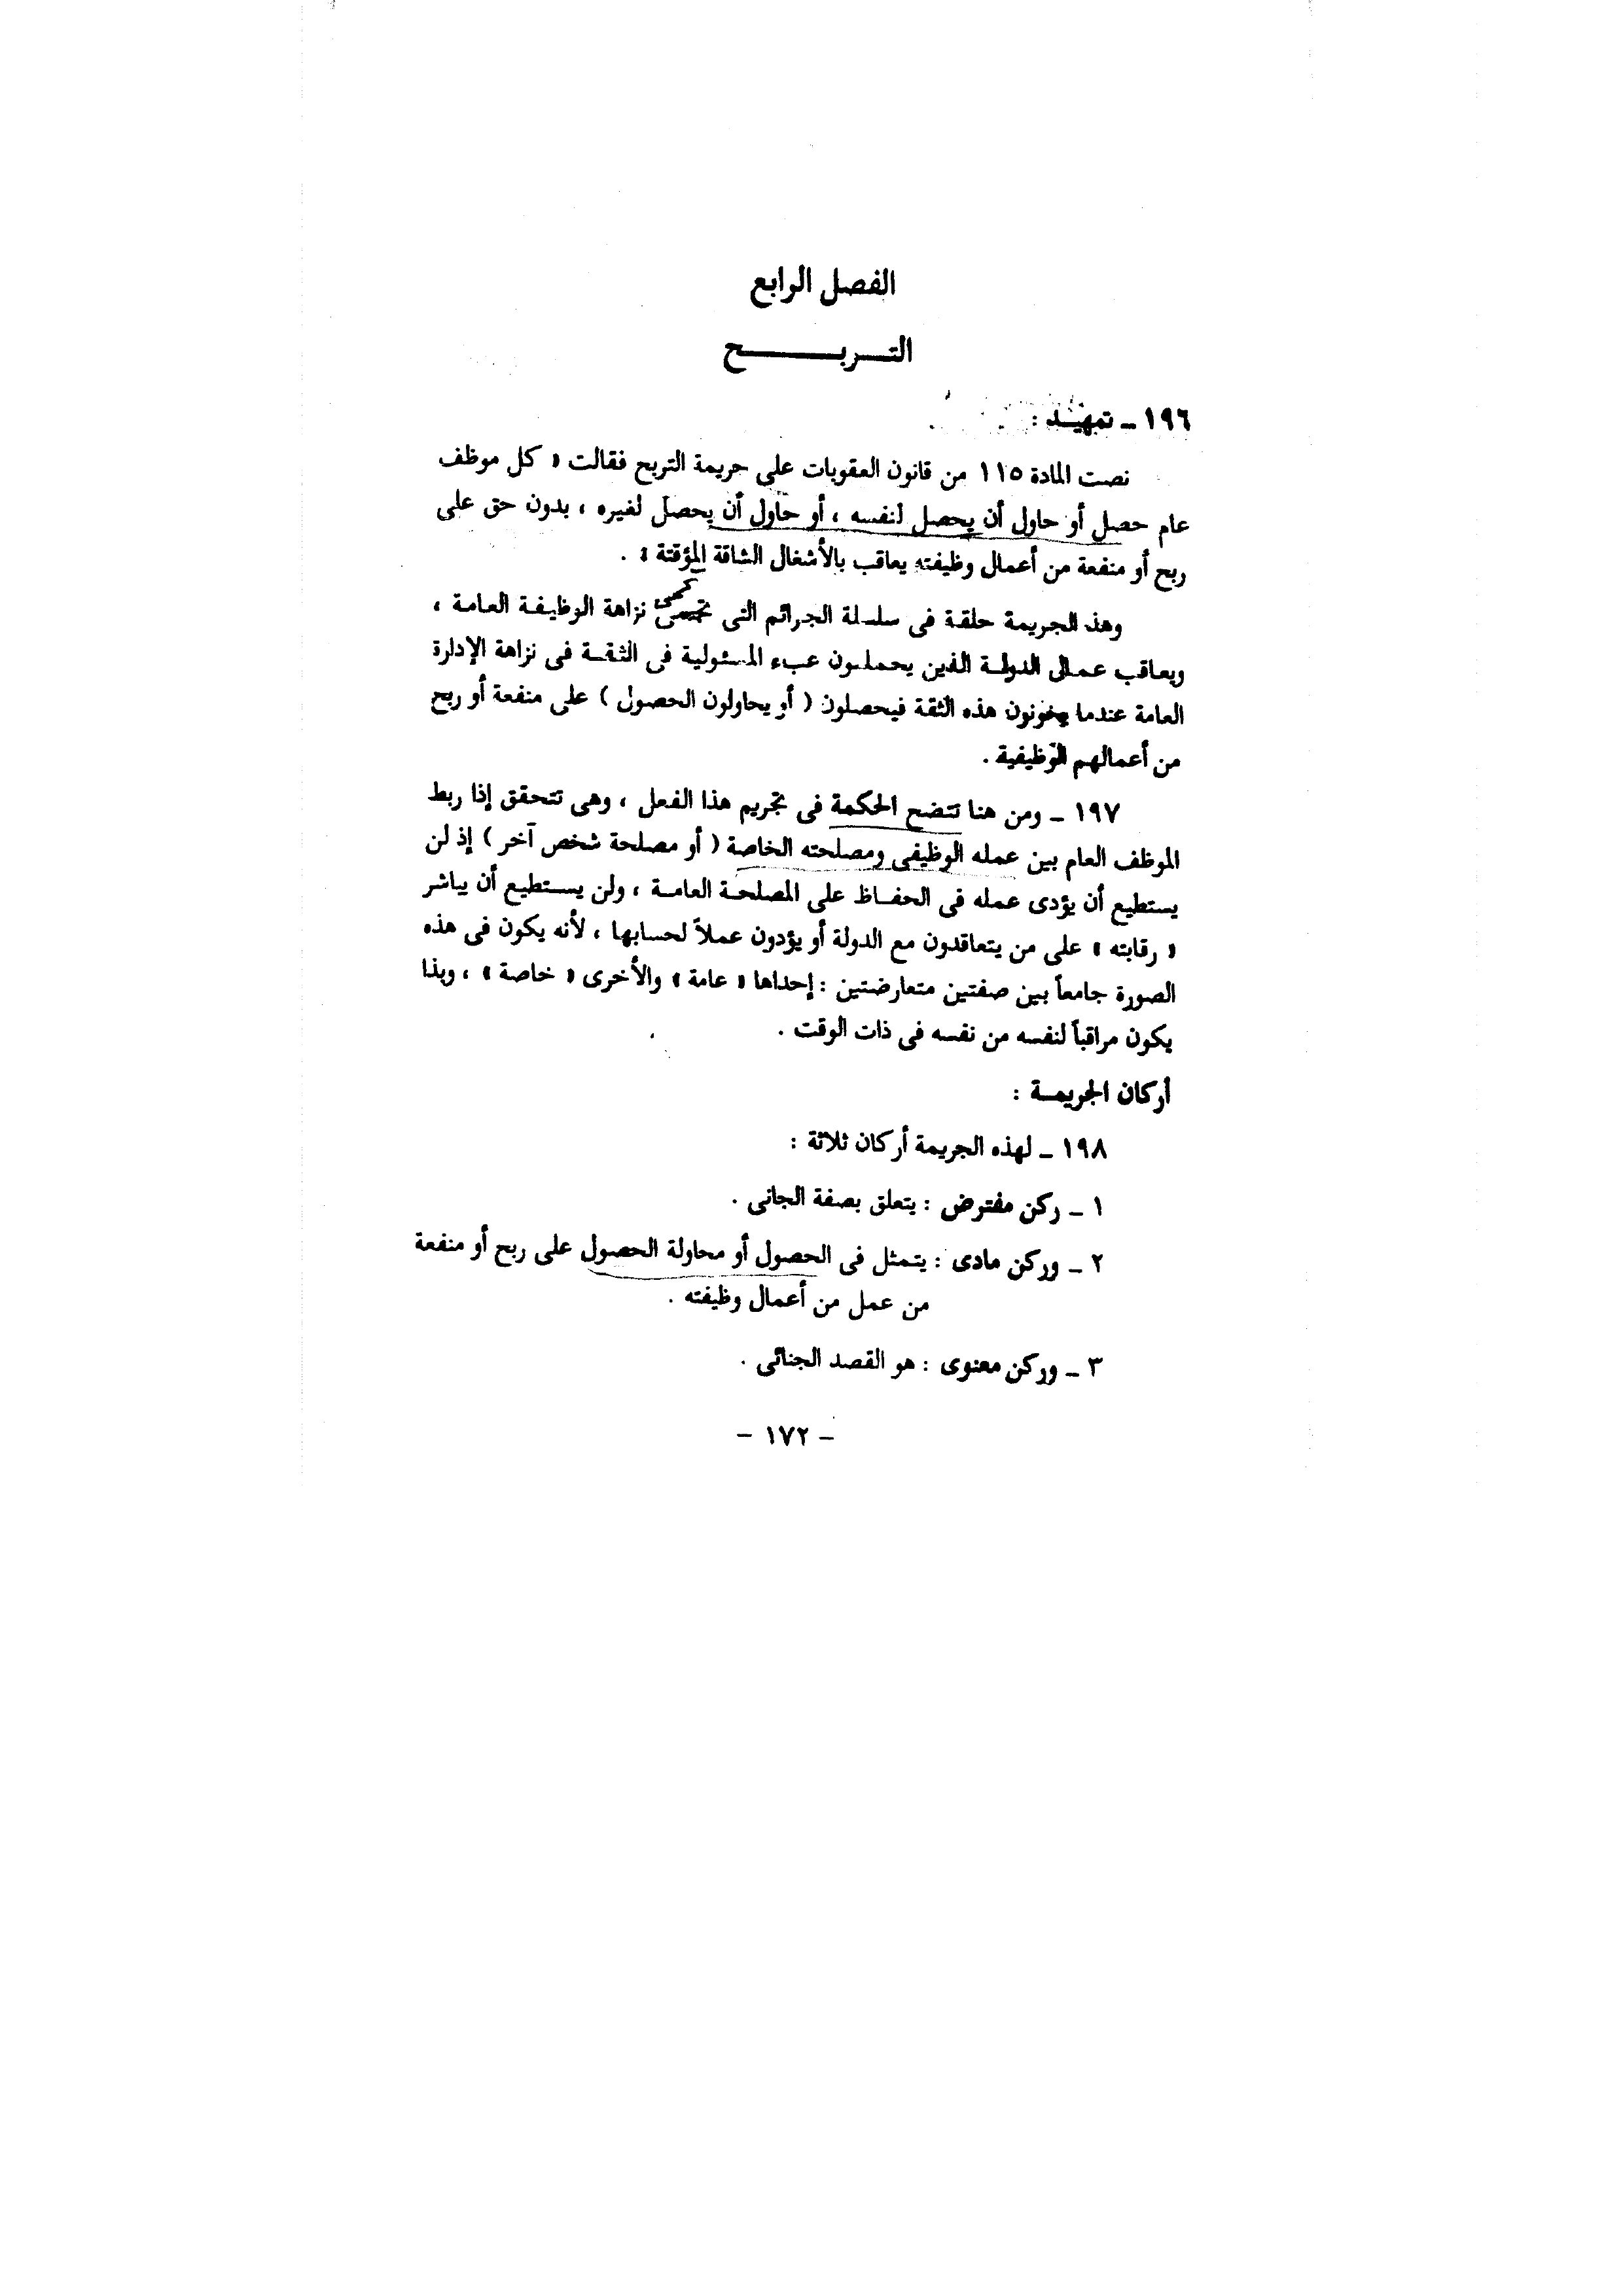 الفصل الرابع
التـــربـــــــــح
١٩٦ ـ تمهيـد :
نصت المادة ١١٥ من قانون العقوبات على جريمة التربح فقالت « كل موظف
عام حصل أو حاول أن يحصل لنفسه ، أو حاول أن يحصل لغيره ، بدون حق على
ربح أو منفعة من أعمال وظيفته يعاقب بالأشغال الشاقة المؤقتة » .
وهذه الجريمة حلقة فى سلسلة الجرائم التى تحمى نزاهة الوظيفة العامة ،
ويعاقب عمال الدولة الذين يحملون عبء المسئولية فى الثقة فى نزاهة الإدارة
العامة عندما يخونون هذه الثقة فيحصلون ( أو يحاولون الحصول ) على منفعة أو ربح
من أعمالهم الوظيفية .
١٩٧ ـ ومن هنا تتضح الحكمة فى تجريم هذا الفعل ، وهى تتحقق إذا ربط
الموظف العام بين عمله الوظيفى ومصلحته الخاصة ( أو مصلحة شخص آخر ) إذ لن
يستطيع أن يؤدى عمله فى الحفـاظ على المصلحـة العامـة ، ولن يستطيع أن يباشر
« رقابته » على من يتعاقدون مع الدولة أو يؤدون عملاً لحسابها ، لأنه يكون فى هذه
الصورة جامعاً بين صفتين متعارضتين : إحداها « عامة » والأخرى « خاصة » ، وبذا
يكون مراقباً لنفسه من نفسه فى ذات الوقت .
أركان الجريمـة :
١٩٨ ـ لهذه الجريمة أركان ثلاثة :
١ ـ ركن مفترض : يتعلق بصفة الجانى .
٢ ـ وركن مادى : يتمثل فى الحصول أو محاولة الحصول على ربح أو منفعة
من عمل من أعمال وظيفته .
٣ ـ وركن معنوى : هو القصد الجنائى .
– ١٧٢ –